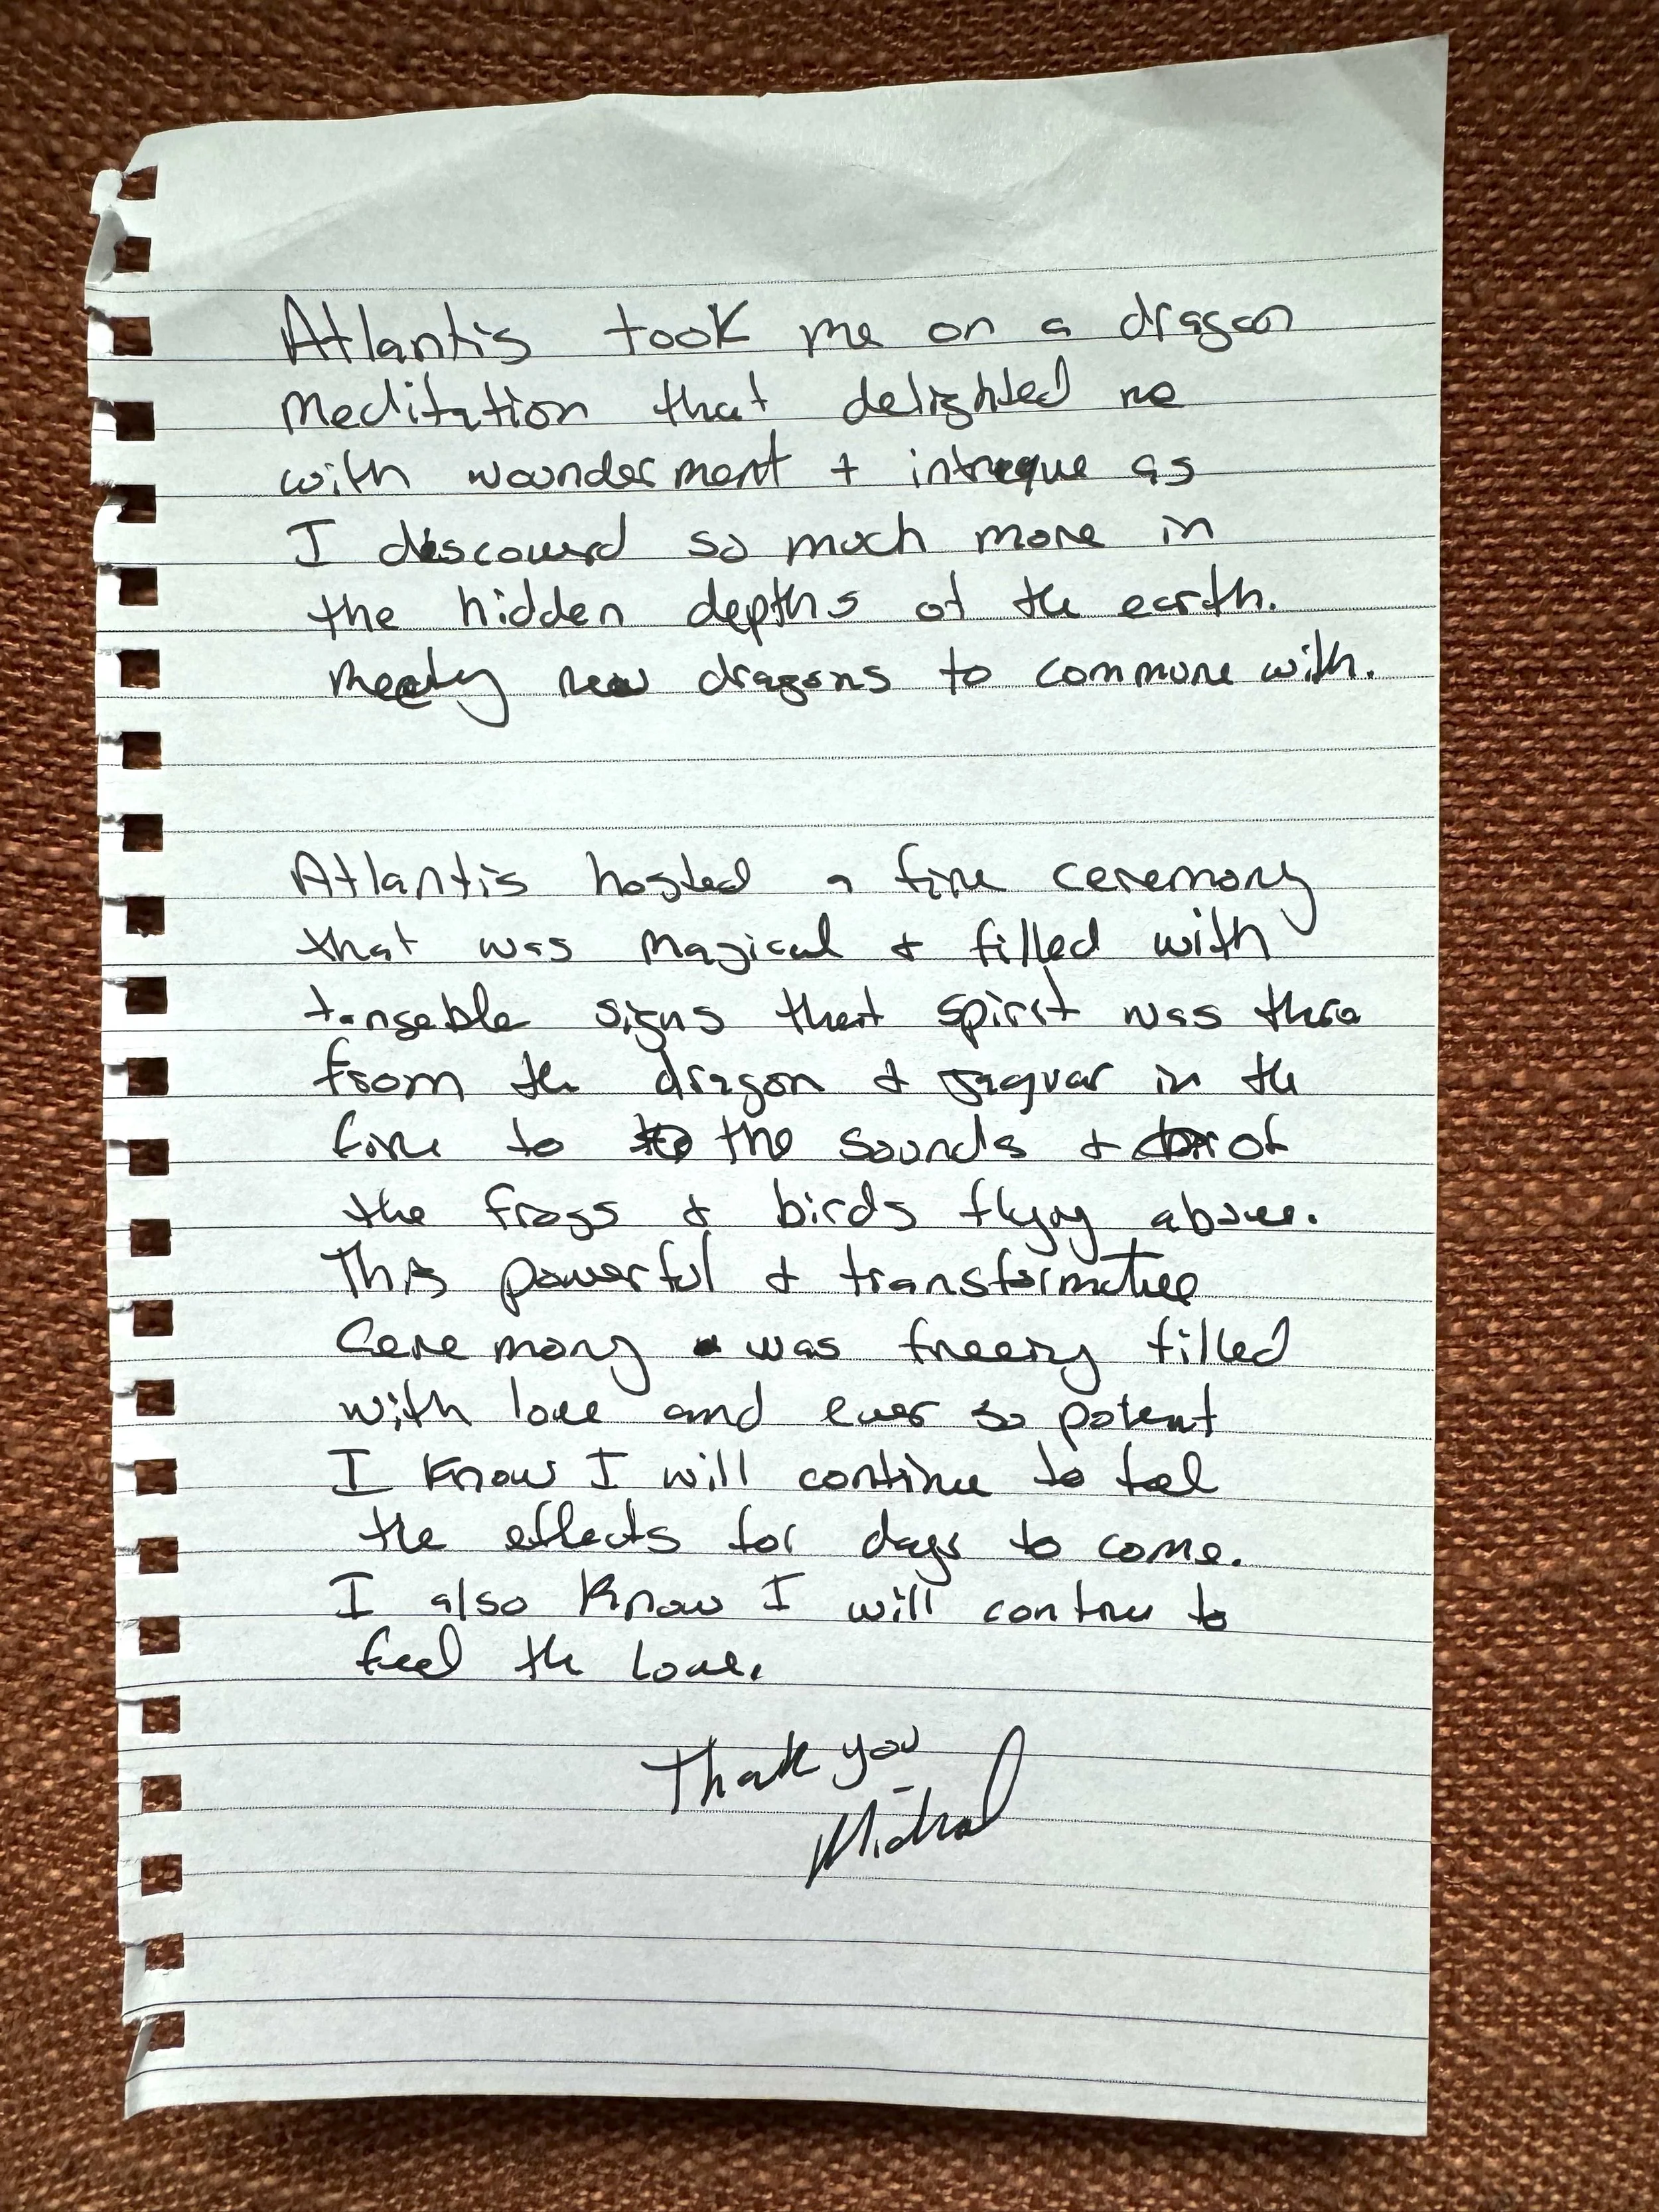 Atlantis took me on a dragon
meditation that delighted me
with wounderment + intreque as
I discoverd so much more in
the hidden depths of the earth.
Meeting new dragons to commune with.
Atlantis hosted a fire ceremony
that was magical & filled with
tangable signs that spirit was there
from the dragon & Jaguar in the
fire to the sounds & of
the frogs & birds flying above.
This powerful & transformative
Ceremony was freeing filled
with love and ever so potent
I know I will continue to feel
the effects for days to come.
I also know I will continue to
feel the love.
Thank you
Michael